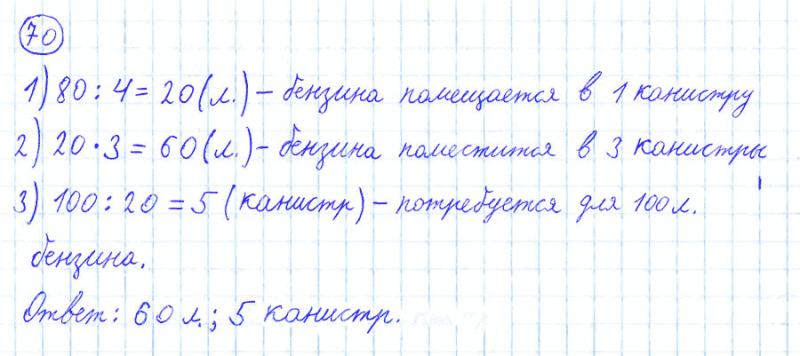 70
1) 80 : 4 = 20 (л.) – бензина помещается в 1 канистру
2) 20 · 3 = 60 (л.) – бензина поместится в 3 канистры
3) 100 : 20 = 5 (канистр) – потребуется для 100 л.
бензина.
Ответ: 60 л.; 5 канистр.